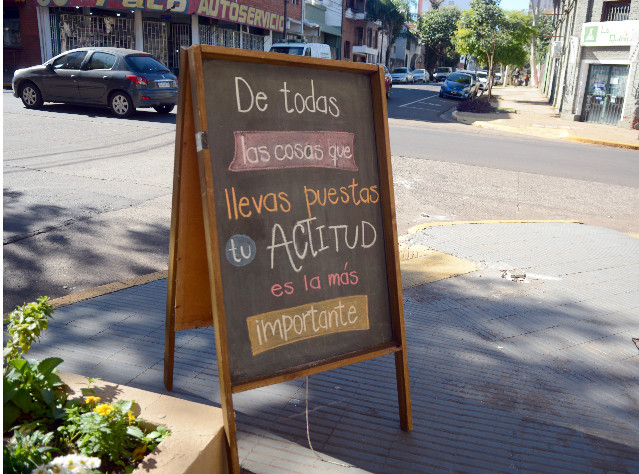 AUTOSERVICIO
De todas
las cosas que
llevas puestas
tu ACTITUD
es la más
importante